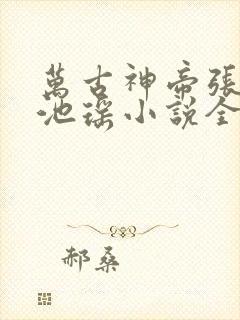 萬古神帝張
池瑤小說全
郝桑